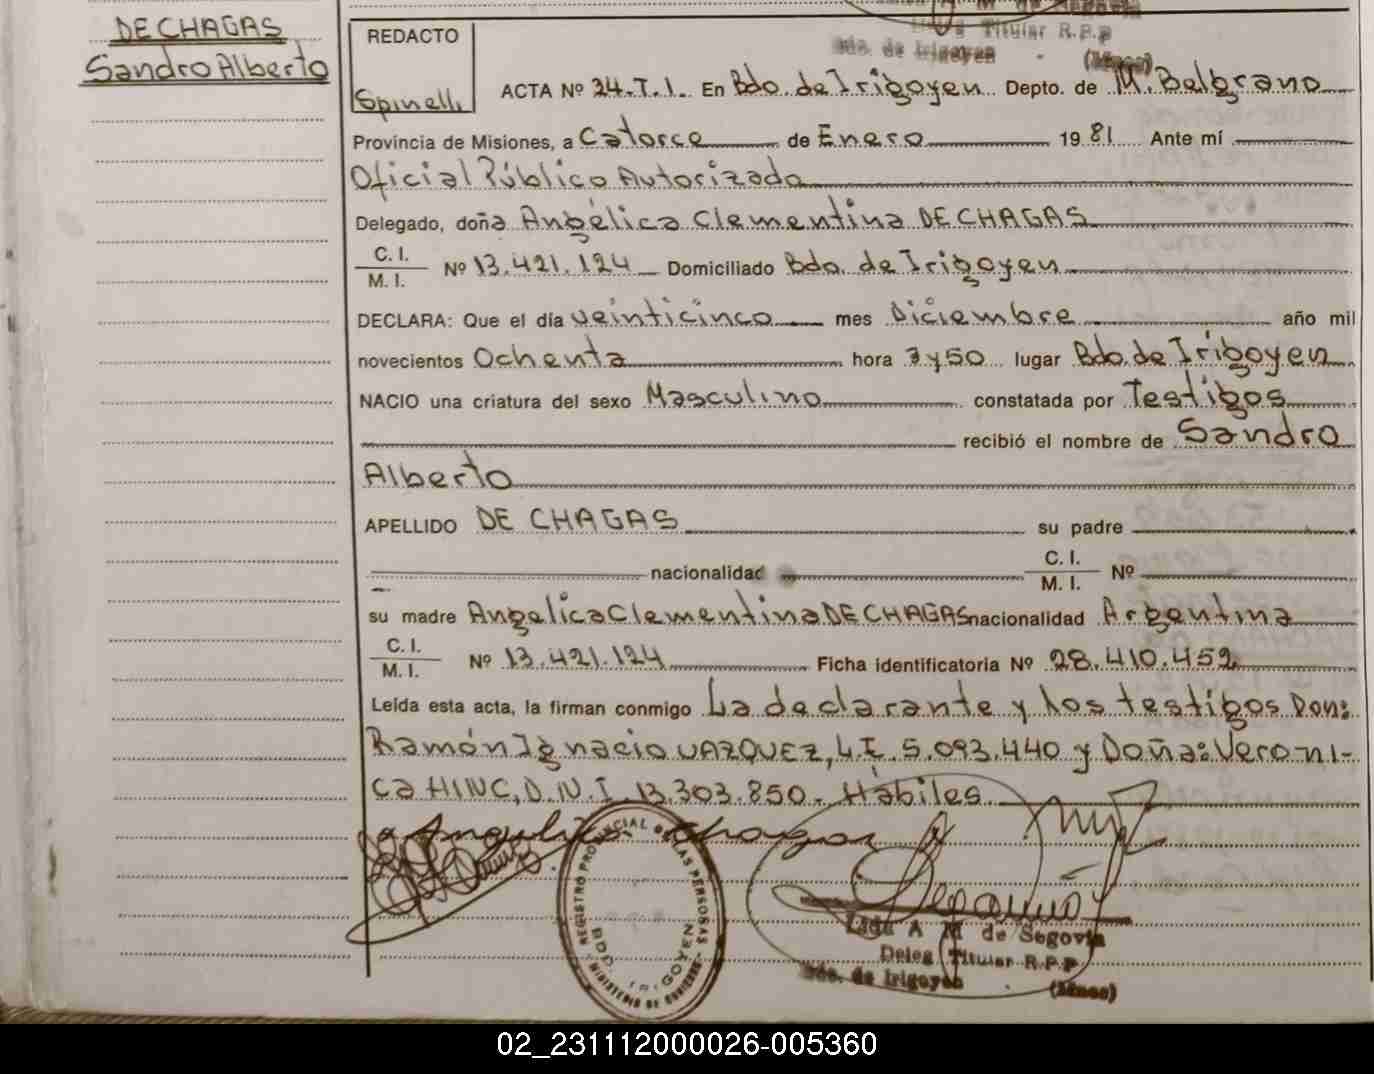 DE CHAGAS
Sandro Alberto
REDACTO
Spinelli
Deleg Titular R.P.P
Bdo. de Irigoyen (Mnes)
ACTA Nº 24.T.I. En Bdo. de Irigoyen Depto. de M. Belgrano
Provincia de Misiones, a Catorce de Enero 1981 Ante mí
Oficial Público Autorizado
Delegado, doña Angélica Clementina DE CHAGAS
C. I.
M. I. Nº 13.421.124 Domiciliado Bdo. de Irigoyen
DECLARA: Que el día veinticinco mes Diciembre año mil
novecientos Ochenta hora 7 y 50 lugar Bdo. de Irigoyen
NACIO una criatura del sexo Masculino constatada por Testigos
recibió el nombre de Sandro
Alberto
APELLIDO DE CHAGAS su padre
nacionalidad C. I.
M. I. Nº
su madre Angelica Clementina DE CHAGAS nacionalidad Argentina
C. I.
M. I. Nº 13.421.124 Ficha identificatoria Nº 28.410.452
Leída esta acta, la firman conmigo La declarante y los testigos Don:
Ramón Ignacio VAZQUEZ, L.E. 5.093.440 y Doña: Veroni-
ca HINC, D.N.I. 13.303.850.- Hábiles
REGISTRO PROVINCIAL DE LAS PERSONAS
BDO. IRIGOYEN
MINISTERIO DE GOBIERNO
Lida A M de Segovia
Deleg Titular R.P.P
Bdo. de Irigoyen (Mnes)
02_231112000026-005360